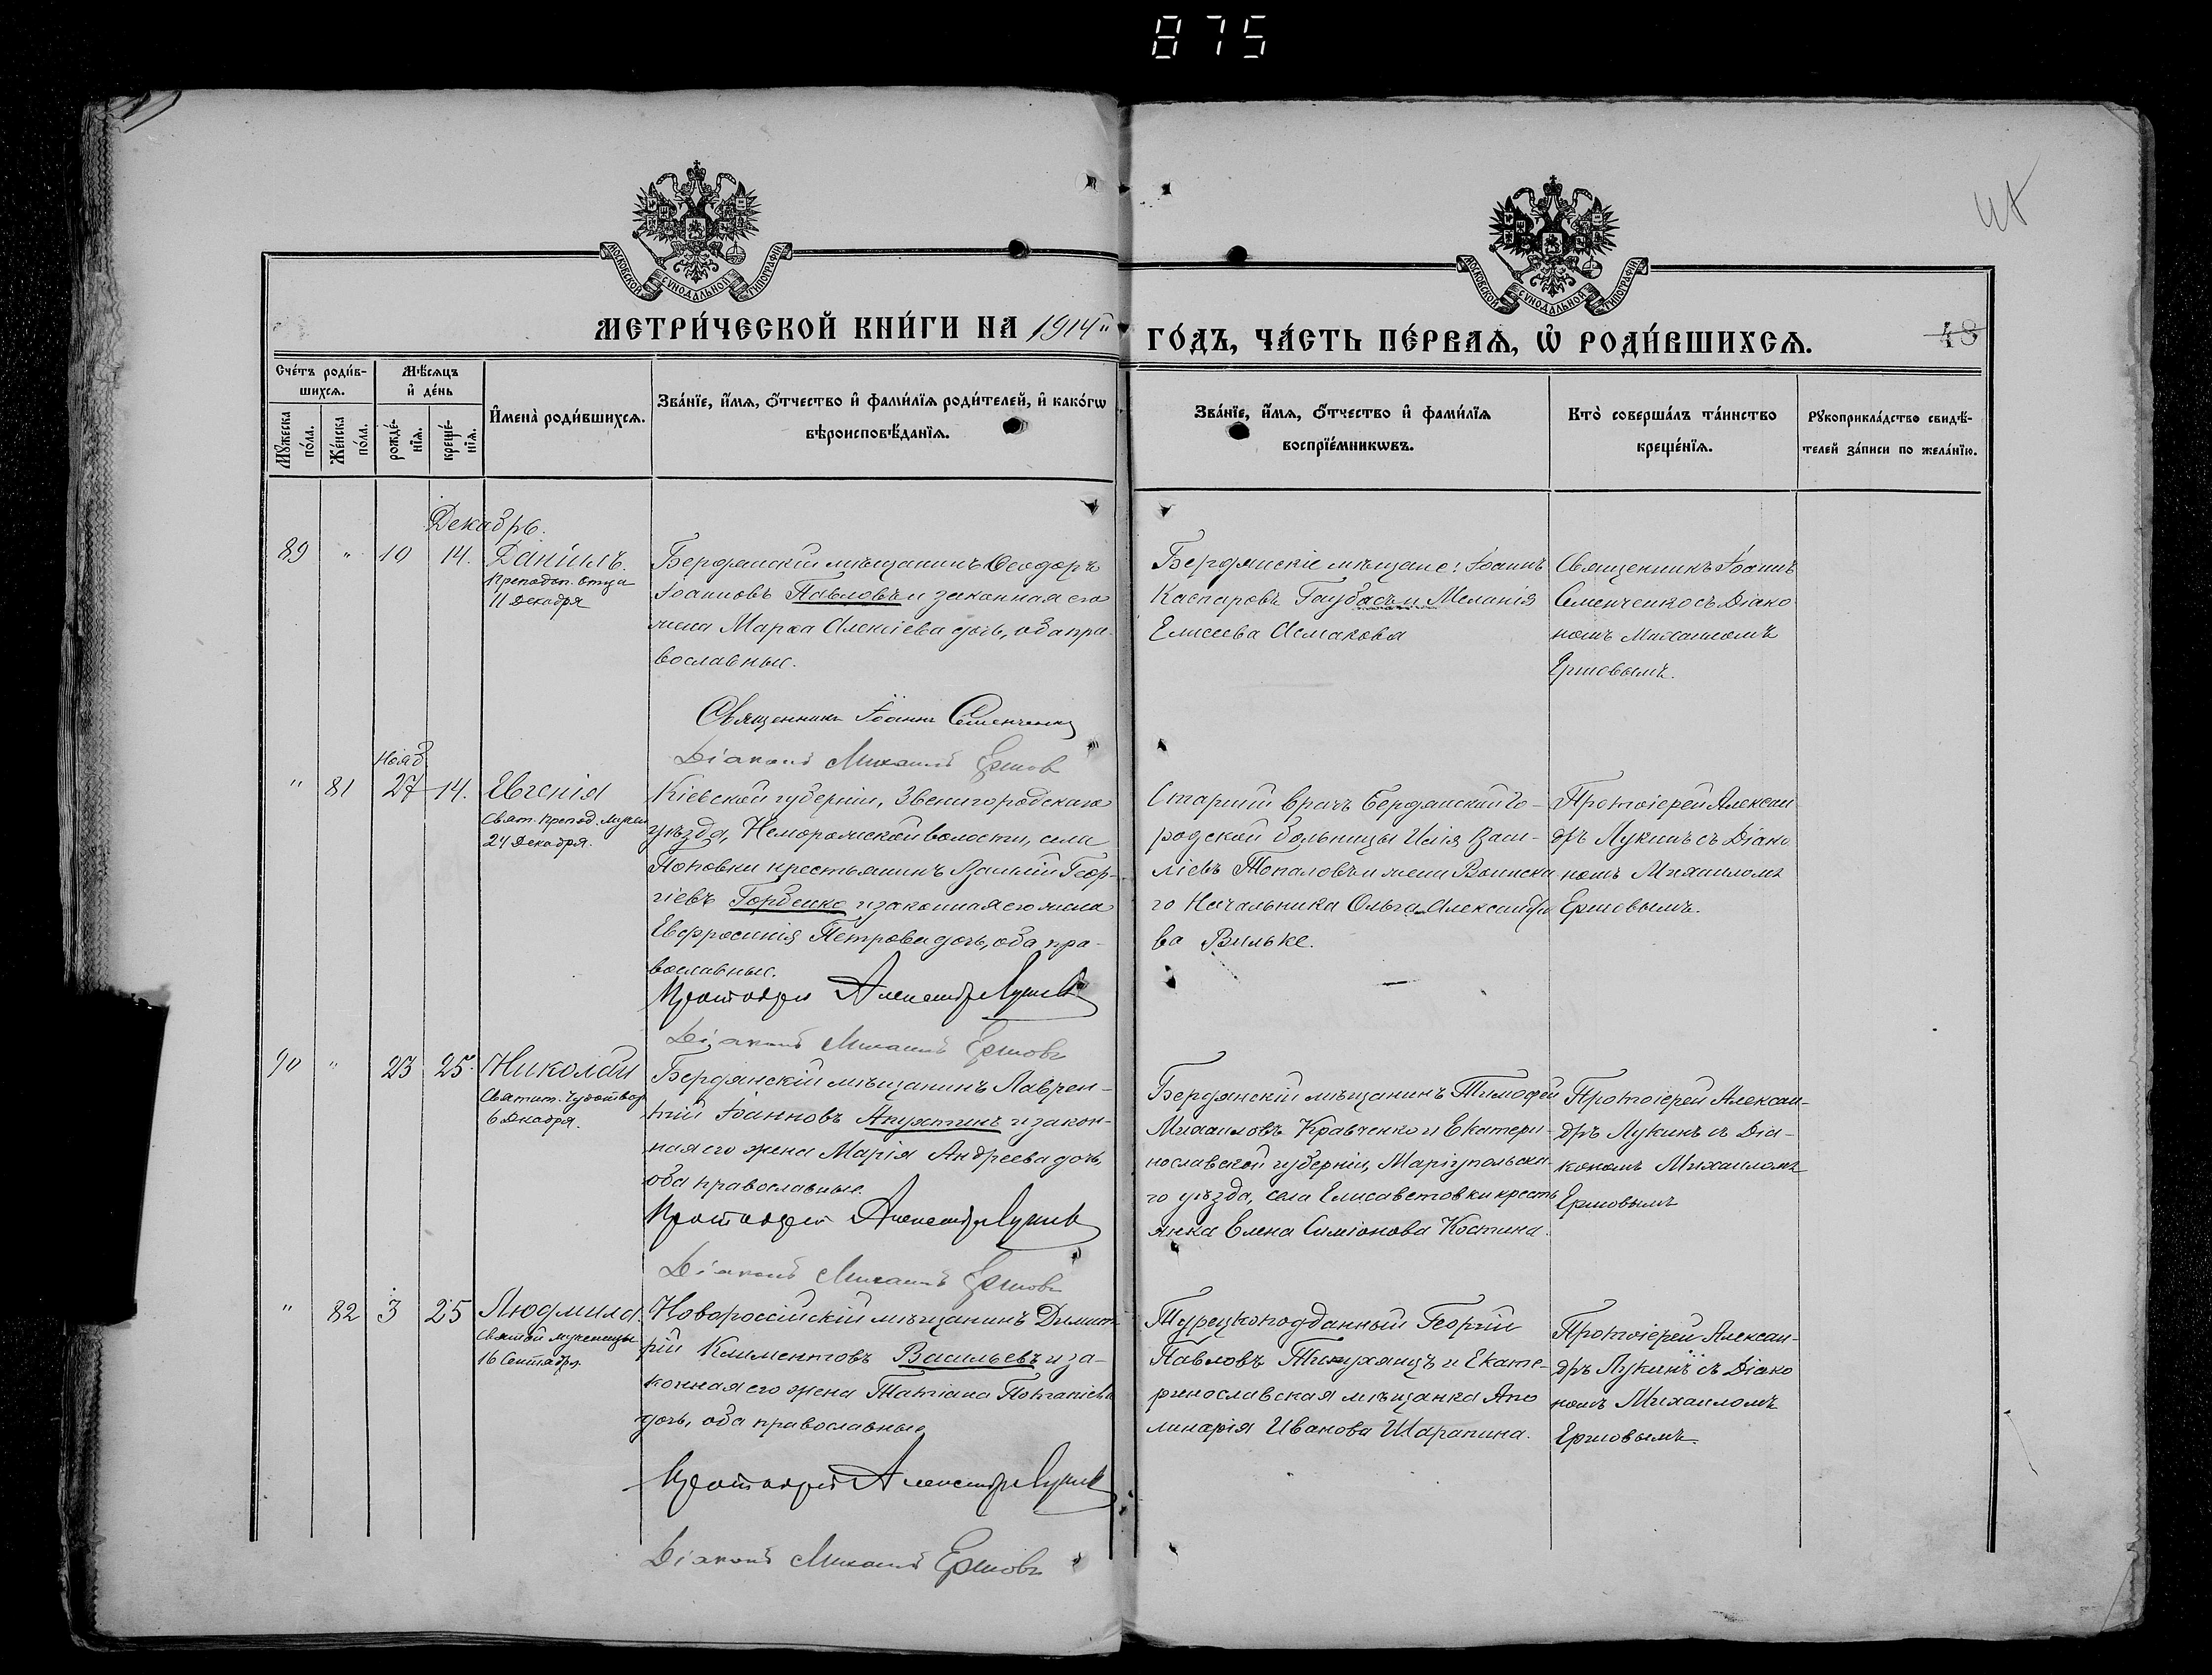 875
МОСКОВСКОЙ СѴНОДАЛЬНОЙ ТИПОГРАФІИ
МОСКОВСКОЙ СѴНОДАЛЬНОЙ ТИПОГРАФІИ
МЕТРИ́ЧЕСКОЙ КНИ́ГИ НА 1914й ГО́ДЪ, ЧА́СТЬ ПЕ́РВАѦ, Ѡ҆ РОДИ́ВШИХСѦ.
48
Сче́тъ роди́в-
шихсѧ.
Мѣ́сѧцъ
и҆ де́нь
Мꙋ́жеска по́ла.
Же́нска по́ла.
рожде́-
нїѧ.
креще́-
нїѧ.
И҆мена̀ роди́вшихсѧ.
Зва́нїе, и҆́мѧ, ѻ҆́тчество и҆ фами́лїѧ роди́телей, и҆ како́гѡ
вѣроисповѣ́данїѧ.
Зва́нїе, и҆́мѧ, ѻ҆́тчество и҆ фами́лїѧ
воспрїе́мникѡвъ.
Кто̀ соверша́лъ та́инство
креще́нїѧ.
Рꙋкоприкла́дство свидѣ́-
телей за́писи по жела́нїю.
Декабрь.
89 " 10 14. Даніилъ.
Преподоб. Отца
11 Декабря
Бердянскій мѣщанинъ Ѳеодоръ
Іоанновъ Павловъ и законная его
жена Марѳа Алексіева дочь, оба пра-
вославные.
Священникъ Іоаннъ Семенченко
Діаконъ Михаилъ Ершов
Бердянскіе мѣщане: Іоаннъ
Каспаровъ Меланія
Елисеева
Священникъ Іоаннъ
Семенченко съ Діако
номъ Михаиломъ
Ершовымъ.
Нояб.
" 81 27 14. Евгенія
24 Декабря.
Кіевской губерніи, Звенигородскаго
уѣзда, волости, села
Поповки крестьянинъ Василій Геор-
гіевъ Горбенко и законная его жена
Евфросинія Петрова дочь, оба пра-
вославные.
Протоіерей Александръ Лукинъ
Діаконъ Михаилъ Ершовъ
Старшій врачъ Бердянской Го-
родской больницы Илія Васи-
ліевъ Топаловъ и жена Воинска
го Начальника Ольга Александро
ва Вильке.
Протоіерей Алексан
дръ Лукинъ съ Діако
номъ Михаиломъ
Ершовымъ.
90 " 23 25. Николай
Святит. Чудотвор
6 Декабря.
Бердянскій мѣщанинъ Лаврен-
тій Іоанновъ Апухтинъ и закон-
ная его жена Марія Андреева дочь,
оба православные.
Протоіерей Александръ Лукинъ
Діаконъ Михаилъ Ершовъ
Бердянскій мѣщанинъ Тимофей
Михаиловъ Кравченко и Екатери-
нославской губерніи, Маріупольска-
го уѣзда, села Елисаветовки кресть
янка Елена Симіонова Костина.
Протоіерей Алексан-
дръ Лукинъ съ Діа-
кономъ Михаиломъ
Ершовымъ
" 82 3 25 Людмила
Святой мученицы
16 Сентября.
Новороссійскій мѣщанинъ Димит-
рій Климентовъ Васильевъ и за-
конная его жена Татіана Потапіева
дочь, оба православные
Протоіерей Александръ Лукинъ
Діаконъ Михаилъ Ершовъ
Турецкоподданный Георгій
Павловъ и Екате-
ринославская мѣщанка Апо
линарія Иванова Шарапина.
Протоіерей Алексан-
дръ Лукинъ съ Діако
номъ Михаиломъ
Ершовымъ